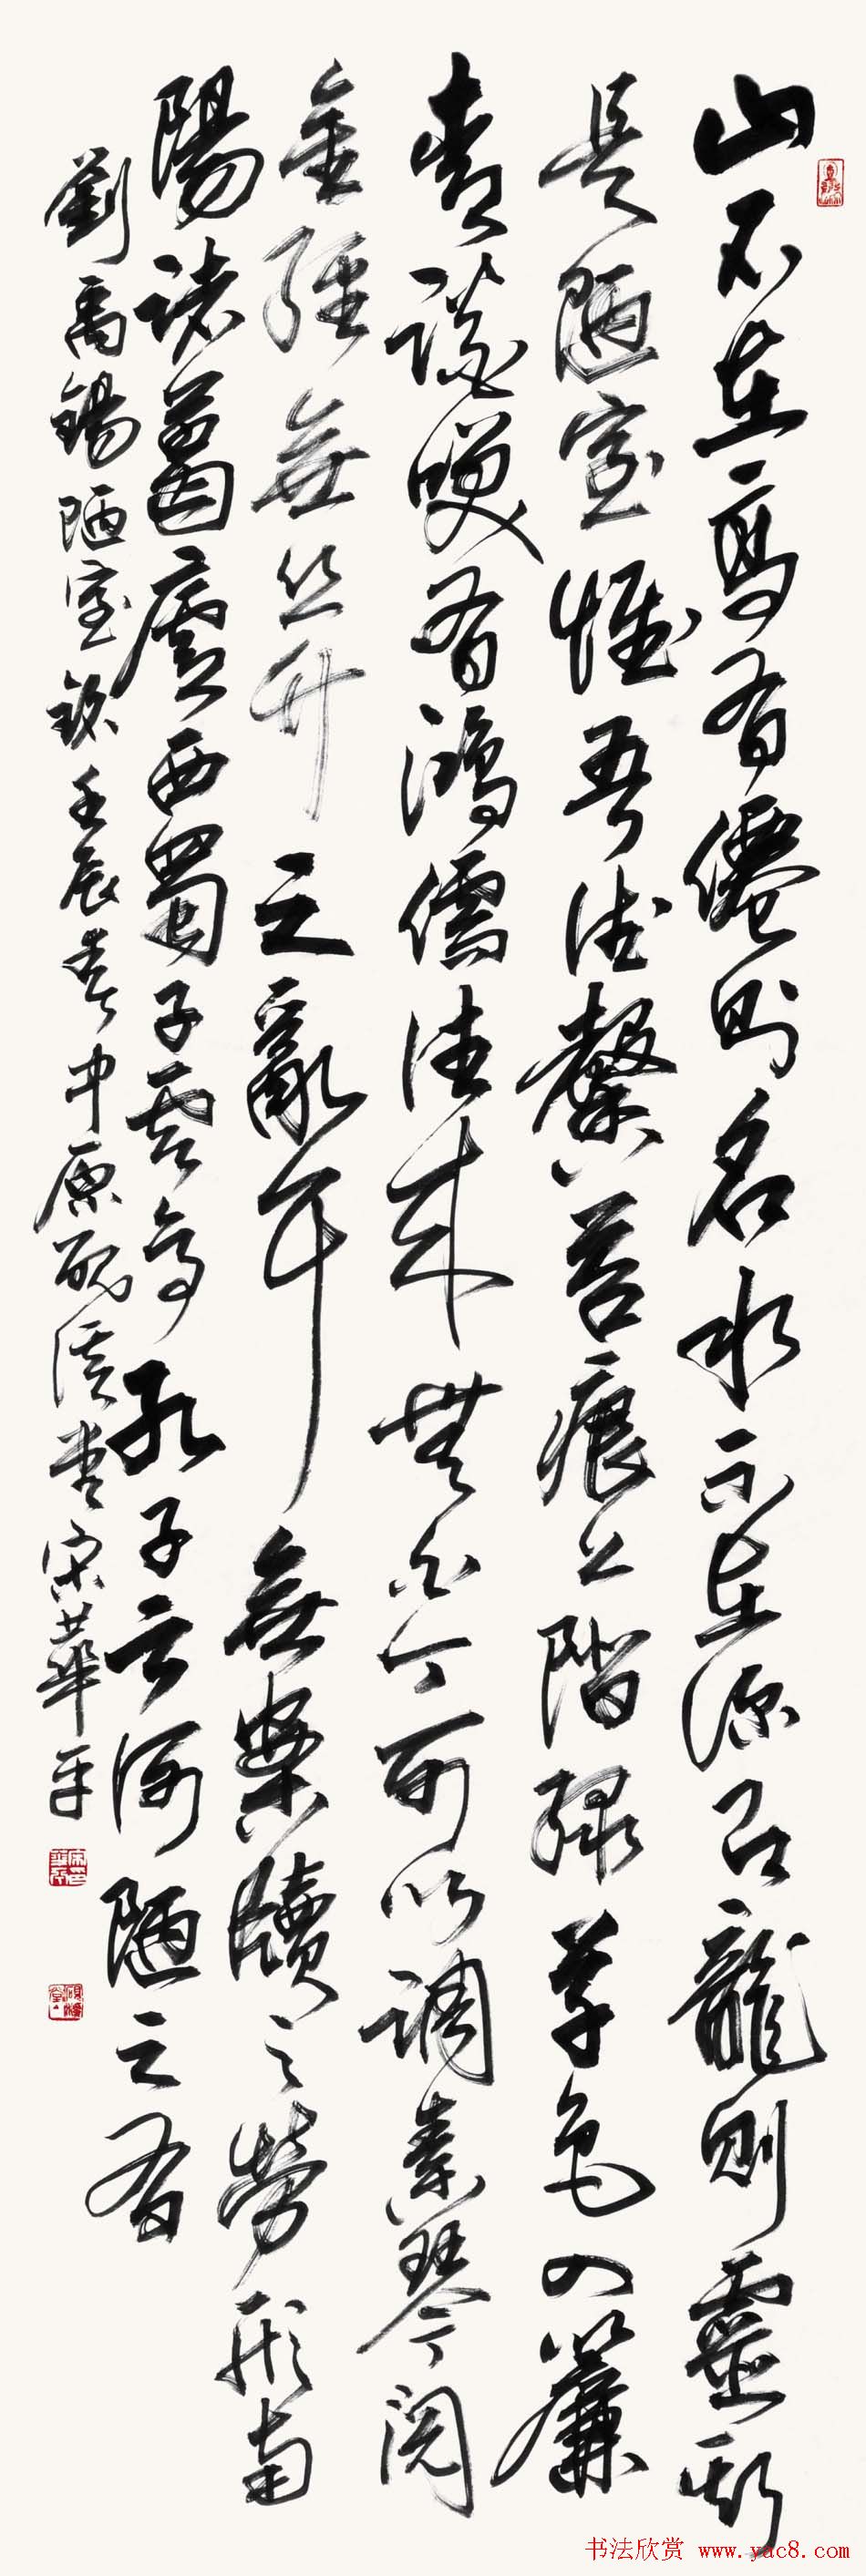 山不在高有僊則名水不在深有龍則靈斯
是陋室惟吾德馨苔痕上階緑草色入簾
青談笑有鴻儒往來無白丁可以調素琴閱
金經無丝竹之亂耳無案牘之勞形南
陽諸葛廬西蜀子雲亭孔子云何陋之有
劉禹錫陋室銘壬辰春中原溪堂宋華平
书法欣赏 www.yac8.com